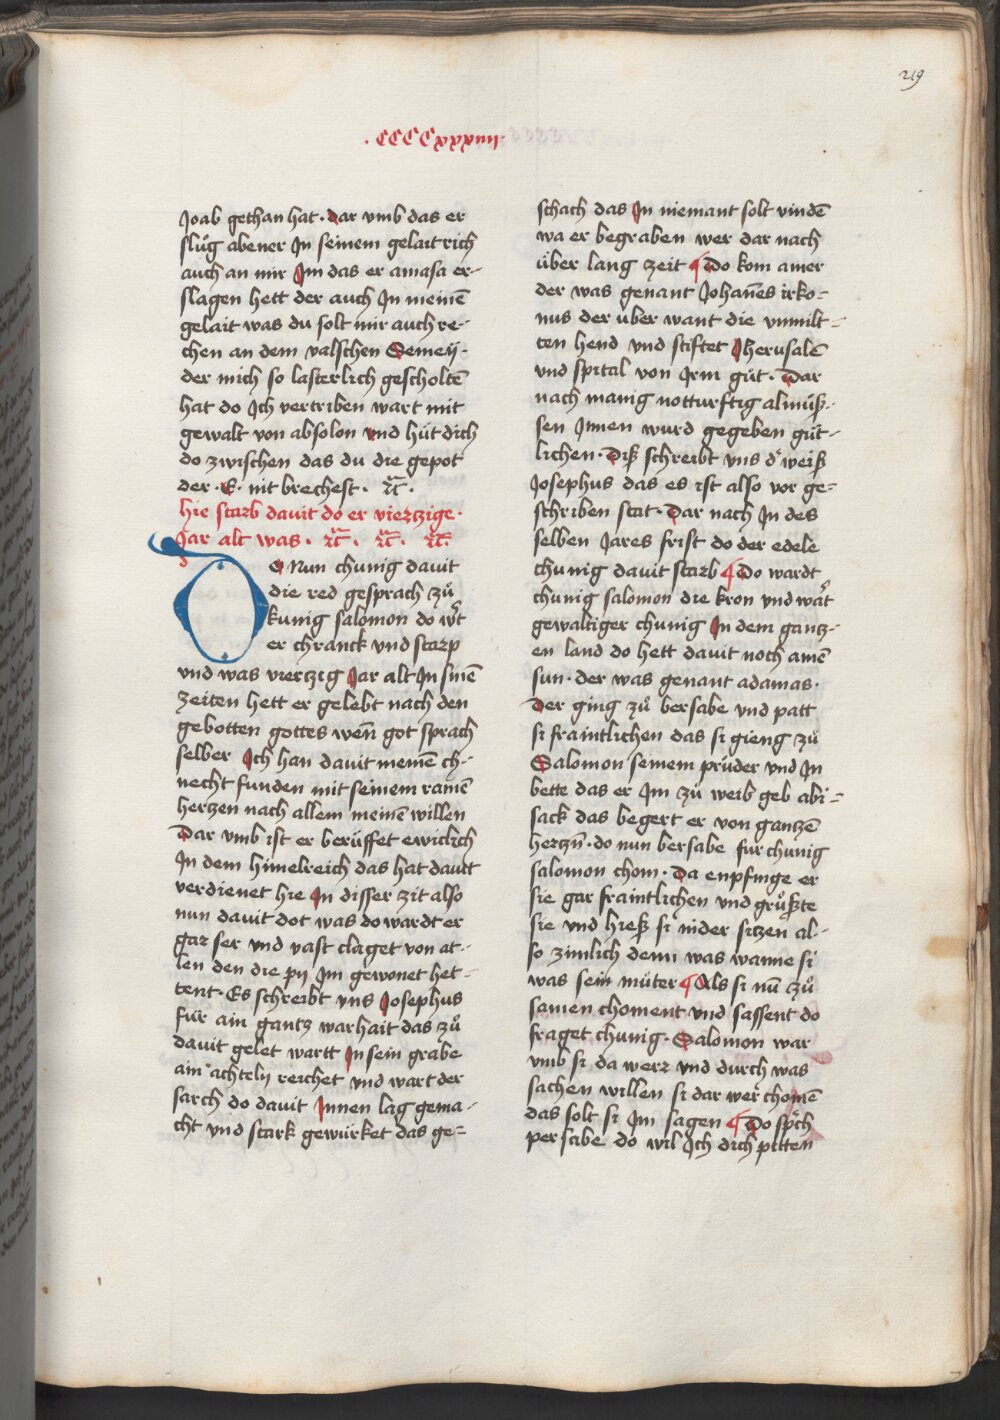 219
· CCCCxxxiiij ·
Joab gethan hat · dar vmb das er
slůg abener Jn seinem gelait rich
auch an mir Jm das er amasa er-
slagen hett der auch Jn meinē
gelait was du solt mir auch re-
chen an dem valschen Semeÿ ·
der mich so lasterlich gescholtē
hat do Jch vertriben wart mit
gewalt von absolon vnd hüt dich
do zwischen das du die gepot
der · E · nit brechest · rc̄ ·
hie starb dauit do er vierczige ·
Jar alt was · rc̄ · rc̄ · rc̄ ·
DO Nun chunig dauit
die red gesprach zů
kunig salomon do wͦt
er chranck vnd starp
vnd was vierczig Jar alt Jn sinē
zeiten hett er gelebt nach den
gebotten gottes wen̄ got sprach
selber Jch han dauit meinē ch-
necht funden mit seinem rainē
hertzen nach allem meinē willen
Dar vmb ist er berůffet ewiclich
Jn dem himelreich das hat dauit
verdienet hie Jn disser zit also
nun dauit dot was do wardt er
gar ser vnd vast claget von al-
len den die pij Jm gewonet het-
tent · Es schreibt vns Josephus
für ain gantz warhait das zů
dauit gelet wartt Jn sein grabe
ain achtelij reichet vnd wart der
sarch do dauit Jnnen lag gema-
cht vnd stark gewürket das ge=
schach das Jn niemant solt vindē
wa er begraben wer dar nach
über lang zeit ¶ Do kom ainer
der was genant Johan̄es irko-
nus der über want die vnmilt-
ten hend vnd stiftet Jherusalē
vnd spital von Jrm gůt · Dar
nach manig notturftig almůß-
sen Jnnen wurd gegeben güt-
lichen · Diß schreibt vns dͤ weiß
Josephus das es ist also vor ge-
schriben stat · Dar nach Jn des
selben Jares frist do der edele
chunig dauit starb ¶ Do wardt
chunig salomon die kron vnd wᷓt
gewaltiger chunig Jn dem gantz-
en land do hett dauit noch ainē
sun · der was genant adamas ·
Der ging zů bersabe vnd patt
si fraintlichen das si gieng zů
Salomon seinem průder vnd Jn
bette das er Jm zů weib geb abi=
sack das begert er von gantzē
hertzn̄ · do nun bersabe für chunig
salomon chom · Da enpfinge er
sie gar fraintlichen vnd grůßte
sie vnd hieß si nider sitzen al-
so zimlich denn was wanne si
was sein můter ¶ Als si nū zů
samen choment vnd sassent do
fraget chunig · Salomon war
vmb si da werz vnd durch was
sachen willen si dar wer chomē
das solt si Jm sagen ¶ Do sp̄ch
persabe do wil Jch dich pitten